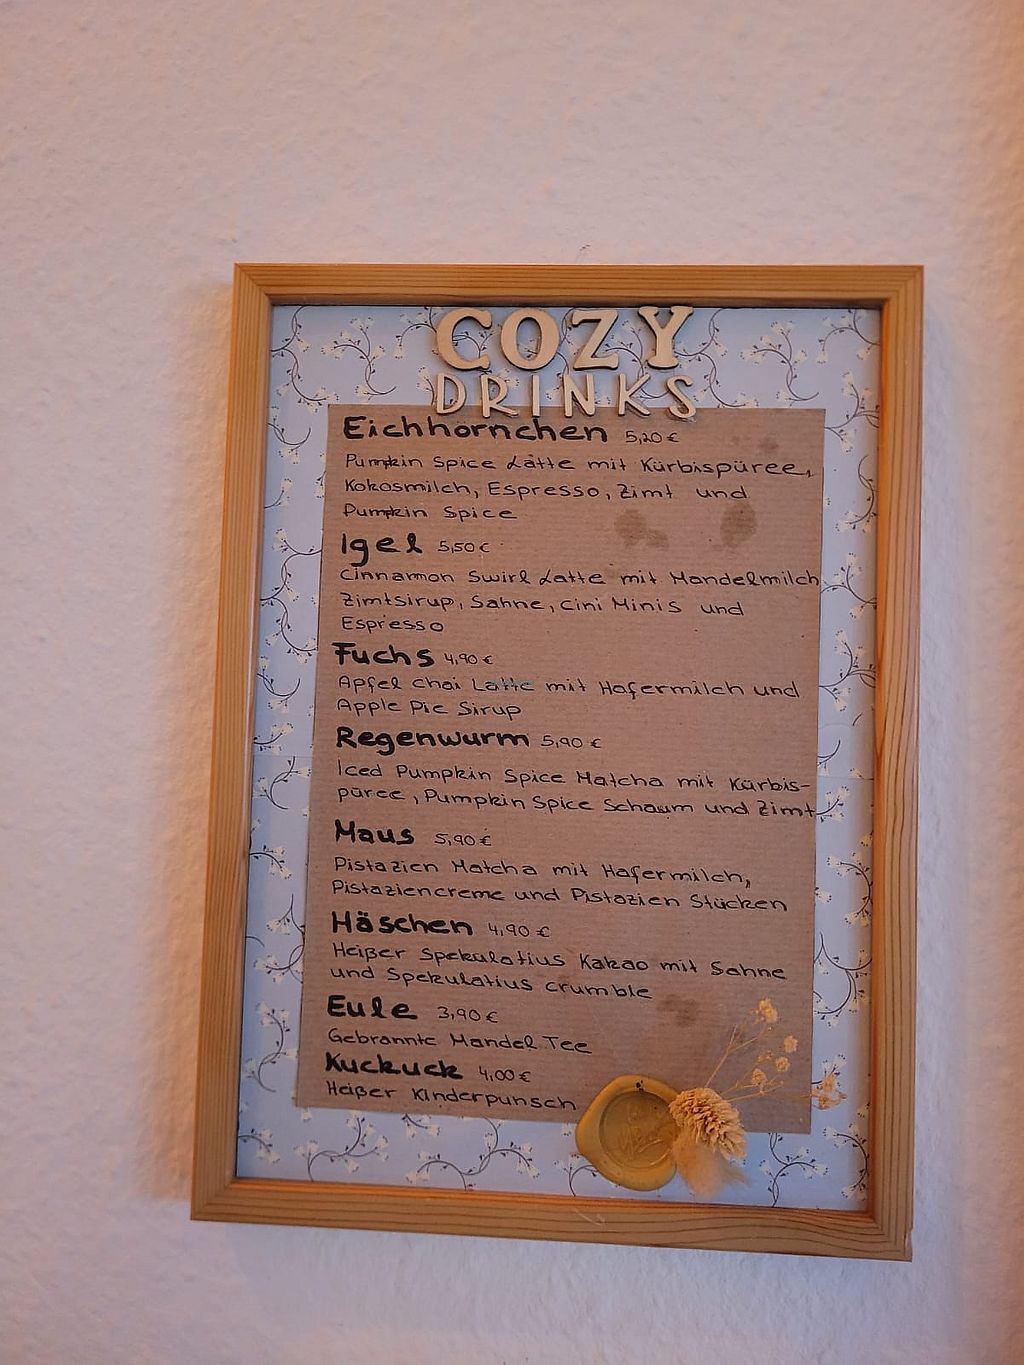 COZY
DRINKS
Eichhörnchen 5,20 €
Pumpkin Spice Latte mit Kürbispüree,
Kokosmilch, Espresso, Zimt und
Pumpkin Spice
Igel 5,50 €
Cinnamon Swirl Latte mit Mandelmilch
Zimtsirup, Sahne, Cini Minis und
Espresso
Fuchs 4,90 €
Apfel Chai Latte mit Hafermilch und
Apple Pie Sirup
Regenwurm 5,90 €
Iced Pumpkin Spice Matcha mit Kürbis-
püree, Pumpkin Spice Schaum und Zimt
Maus 5,90 €
Pistazien Matcha mit Hafermilch,
Pistaziencreme und Pistazien Stücken
Häschen 4,90 €
Heißer Spekulatius Kakao mit Sahne
und Spekulatius crumble
Eule 3,90 €
Gebrannte Mandel Tee
Kuckuck 4,00 €
Heißer Kinderpunsch